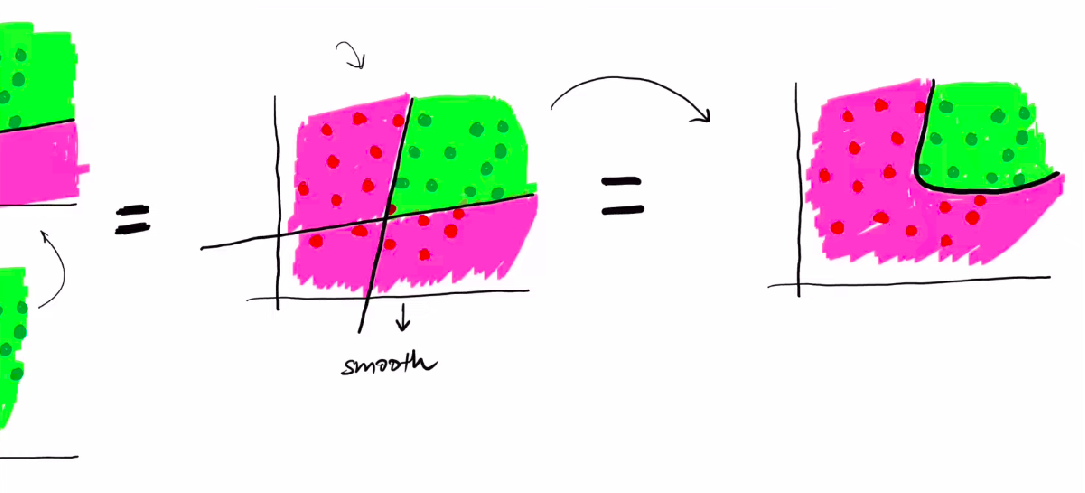 =
=
smooth